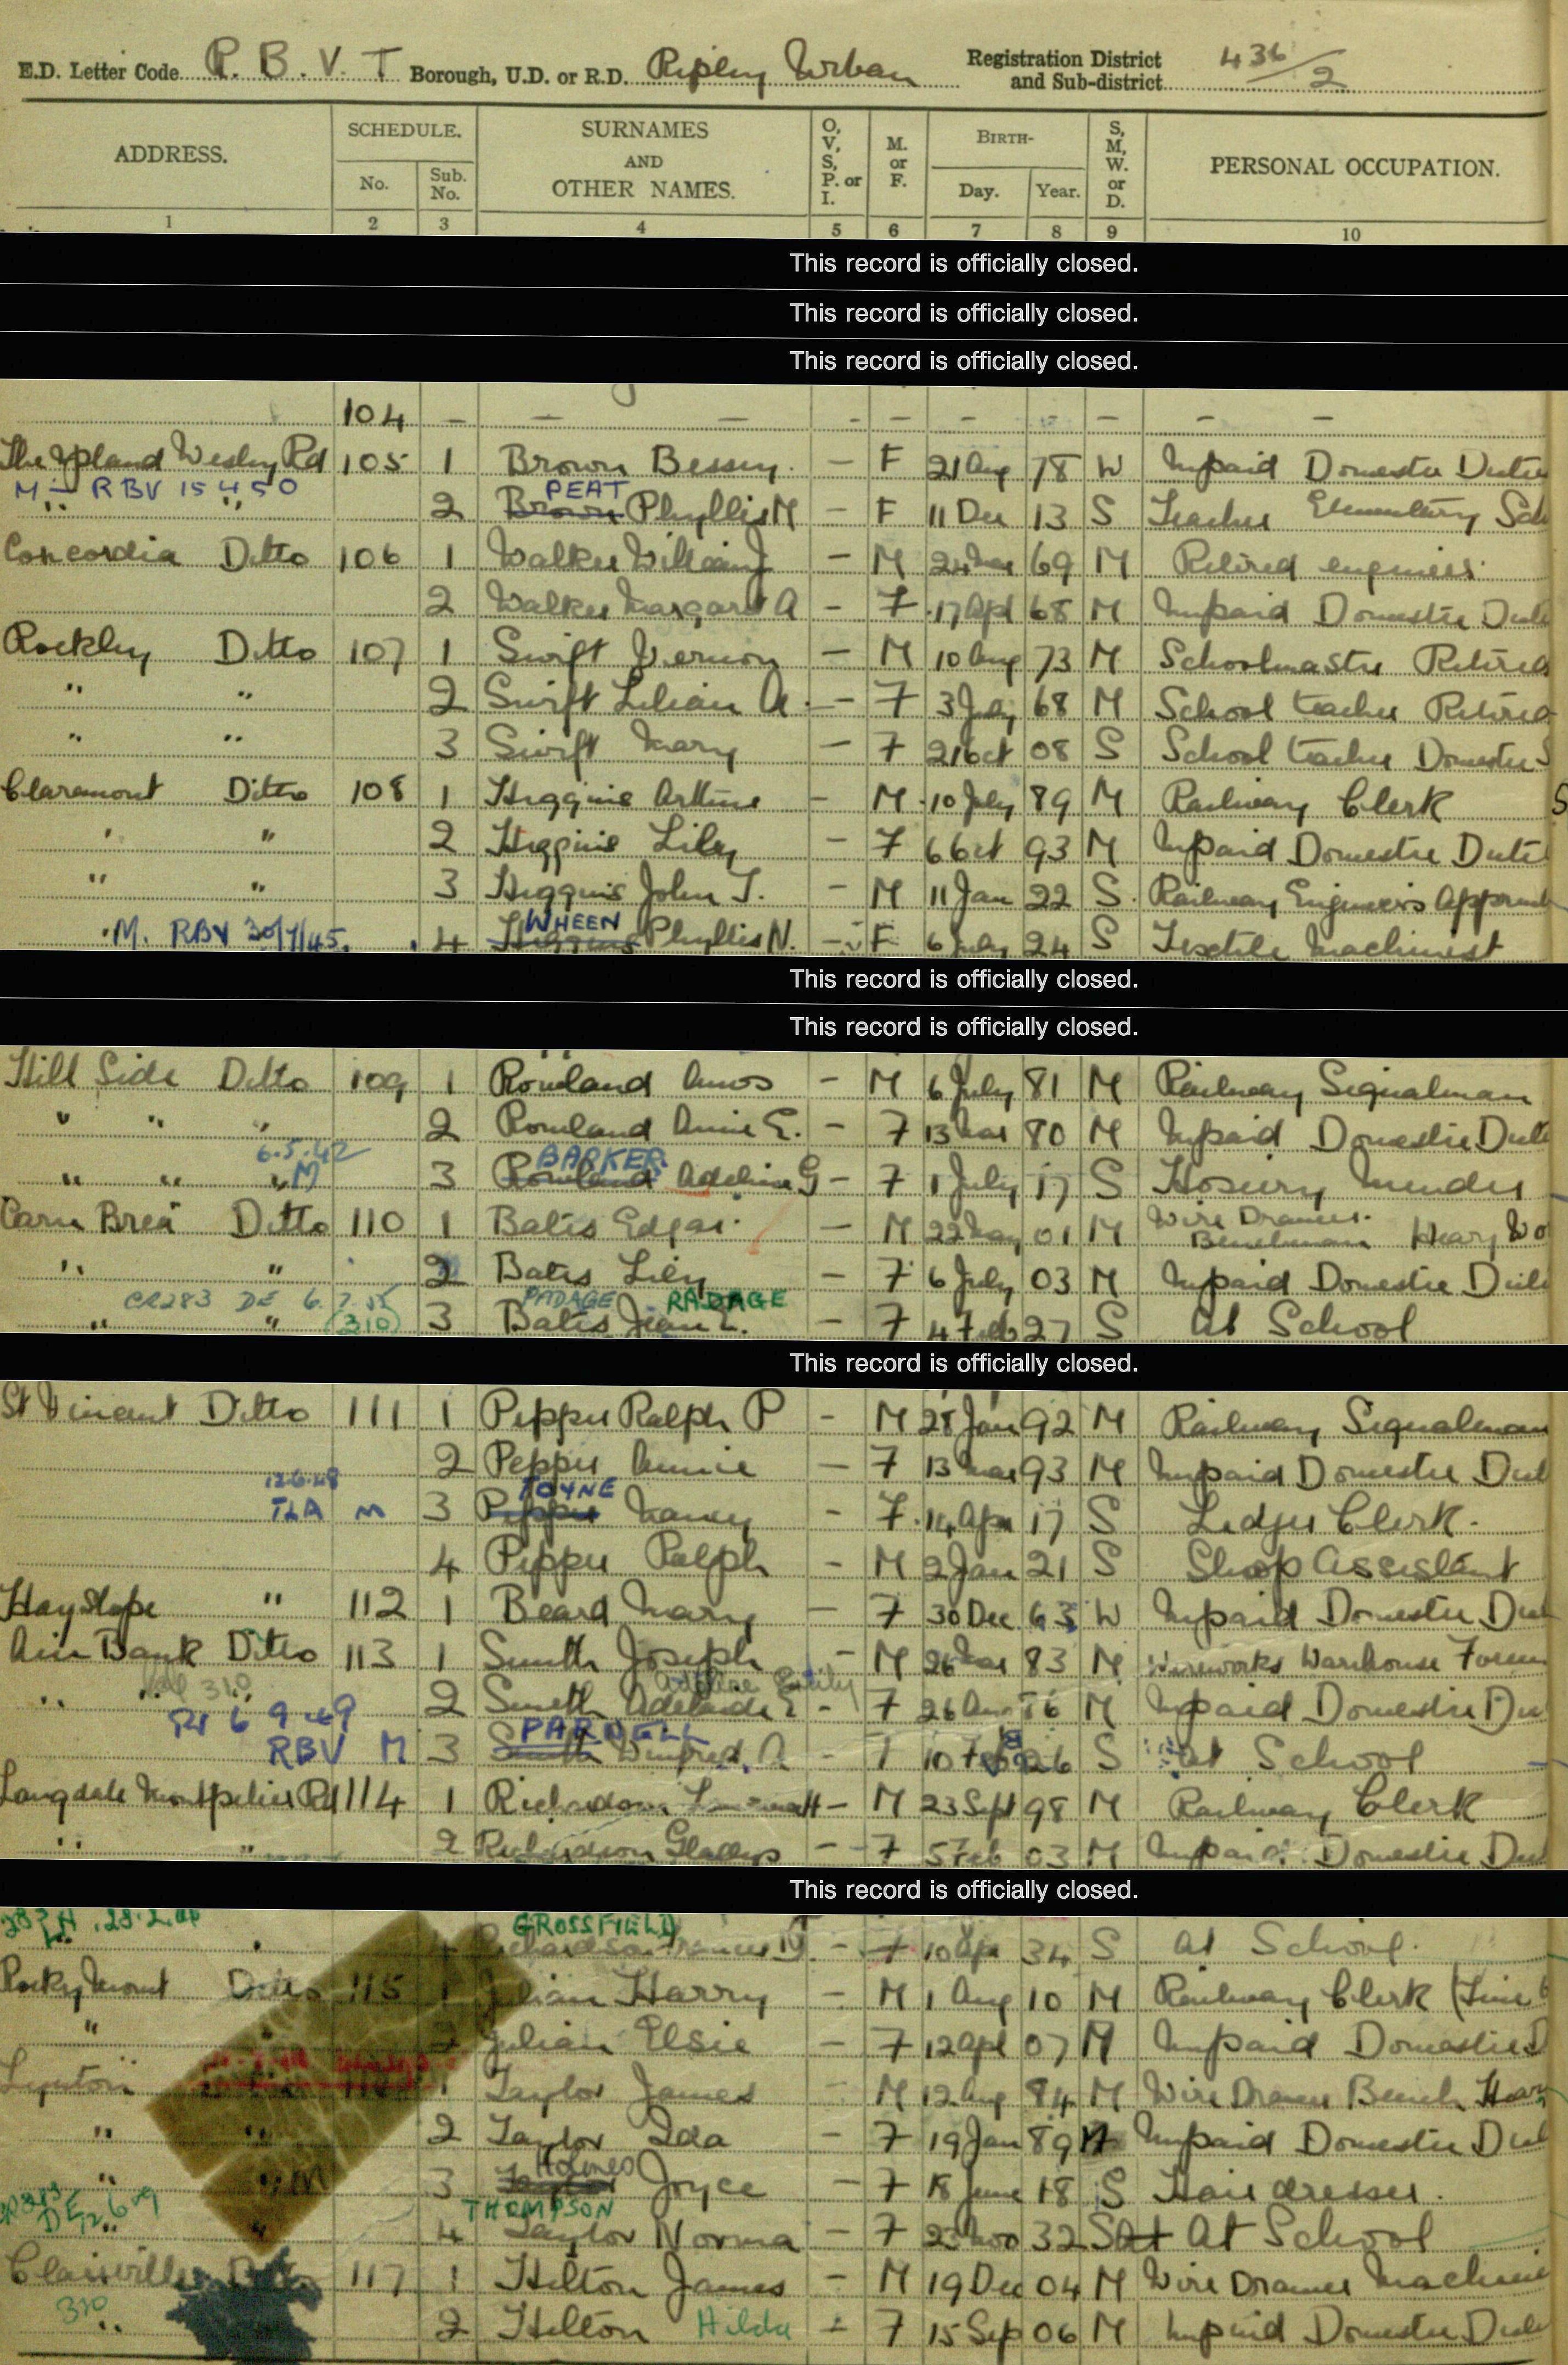 E.D. Letter Code R. B. V. T Borough, U.D. or R.D. Ripley Urban Registration District and Sub-district 436/2
ADDRESS. SCHEDULE. No. Sub. No. SURNAMES AND OTHER NAMES. O, V, S, P. or I. M. or F. BIRTH- Day. Year. S, M, W. or D. PERSONAL OCCUPATION.
1 2 3 4 5 6 7 8 9 10
This record is officially closed.
This record is officially closed.
This record is officially closed.
104 - - - - - - - - - -
The Upland Wesley Rd 105 1 Brown Bessy. - F 21 Aug 78 W Unpaid Domestic Duties
M - RBV 15 4 50 PEAT
" " 2 Brown Phyllis M - F 11 Dec 13 S Teacher Elementary Sch
Concordia Ditto 106 1 Walker William J - M 24 Mar 69 M Retired engineer
2 Walker Margaret A - F 17 Apl 68 M Unpaid Domestic Duti
Rockley Ditto 107 1 Swift Vernon - M 10 Aug 73 M Schoolmaster Retired
" " 2 Swift Lilian A. - F 3 July 68 M School teacher Retired
" " 3 Swift Mary - F 21 Oct 08 S School teacher Domestic S
Claremont Ditto 108 1 Higgins Arthur - M 10 July 89 M Railway Clerk S
" " 2 Higgins Lily - F 6 Oct 93 M Unpaid Domestic Duti
" " 3 Higgins John T. - M 11 Jan 22 S. Railway Engineers Apprent
WHEEN
M. RBV 30/7/45. 4 Higgins Phyllis N. - F 6 May 24 S Textile Machinist
This record is officially closed.
This record is officially closed.
Hill Side Ditto 109 1 Rowland Amos - M 6 July 81 M Railway Signalman
" " " 2 Rowland Annie E. - F 13 Mar 80 M Unpaid Domestic Duti
6.5.42 BARKER
" " " M 3 Rowland Adeline G - F 1 July 17 S Hosiery Mender
Carn Brea Ditto 110 1 Bates Edgar - M 22 May 01 M Wire Drawer. Benchman Heavy Wo
" " 2 Bates Lily - F 6 July 03 M Unpaid Domestic Duti
CR283 DE 6.7.55 PADAGE RADAGE
" " (310) 3 Bates Jean L. - F 4 Feb 27 S At School
This record is officially closed.
St Vincent Ditto 111 1 Pepper Ralph P - M 28 Jan 92 M Railway Signalman
2 Pepper Annie - F 13 Mar 93 M Unpaid Domestic Duti
12.6.48 TOYNE
TLA M 3 Pepper Nancy - F 14 Apr 17 S Ledger Clerk.
4 Pepper Ralph - M 2 Jan 21 S Shop Assistant
Hay Slope " 112 1 Beard Mary - F 30 Dec 63 W Unpaid Domestic Dut
Ain Bank Ditto 113 1 Smith Joseph - M 26 Mar 83 M Wireworks Warehouse Forem
310 Adeline Emily
" " 2 Smith Adelaide E - F 26 Aug 86 M Unpaid Domestic Du
6 9 49 PARNELL
RBV M 3 Smith Winifred. A - F 10 Feb 26 S At School
Langdale Montpelier Rd 114 1 Richardson - M 23 Sept 98 M Railway Clerk
" " 2 Richardson Gladys - F 5 Feb 03 M Unpaid Domestic Du
This record is officially closed.
28.2. GROSSFIELD
Richardson - F 10 Apr 34 S At School.
Rocky Mount Ditto 115 1 Julian Harry - M 1 Aug 10 M Railway Clerk
" Julian Elsie - F 12 Apl 07 M Unpaid Domestic D
Lynton 1 Taylor James M 12 Aug 84 M Wire Drawer Bench Heavy
" " 2 Taylor Ida - F 19 Jan 89 M Unpaid Domestic Dut
Holmes
" " M 3 Taylor Joyce - F 18 June 18 S Hair dresser.
THOMPSON
" " 4 Taylor Norma - F 23 Nov 32 S At At School
Clairville Ditto 117 1 Hilton James - M 19 Dec 04 M Wire Drawer Machine
310
" 2 Hilton Hilda - F 15 Sep 06 M Unpaid Domestic Duti